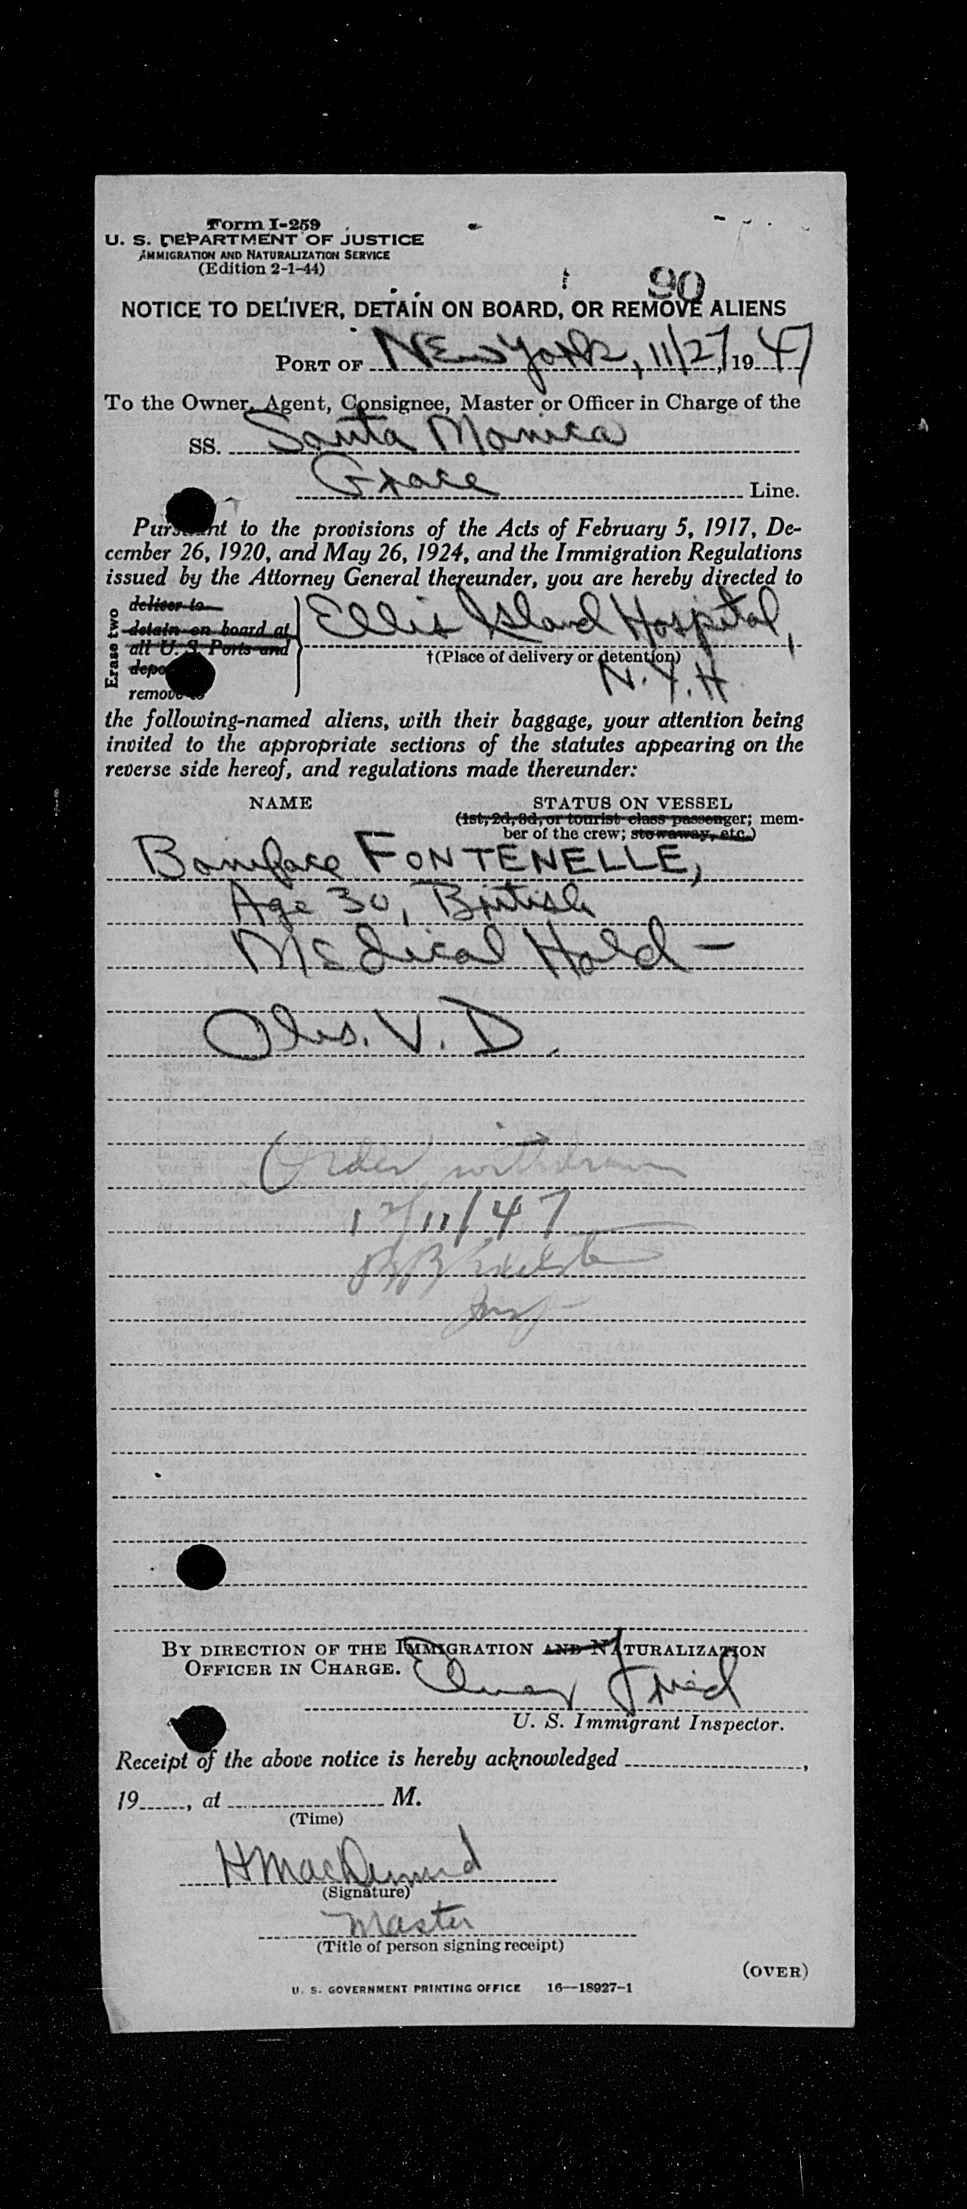 Form I-259
U. S. DEPARTMENT OF JUSTICE
IMMIGRATION AND NATURALIZATION SERVICE
(Edition 2-1-44)
90
NOTICE TO DELIVER, DETAIN ON BOARD, OR REMOVE ALIENS
PORT OF New York, 11/27, 1947
To the Owner, Agent, Consignee, Master or Officer in Charge of the
SS. Santa Monica
Grace Line.
Pursuant to the provisions of the Acts of February 5, 1917, De-
cember 26, 1920, and May 26, 1924, and the Immigration Regulations
issued by the Attorney General thereunder, you are hereby directed to
Erase two
deliver to
detain on board at
all U. S. Ports and
depo
remove to
Ellis Island Hospital,
†(Place of delivery or detention)
N.Y.H
the following-named aliens, with their baggage, your attention being
invited to the appropriate sections of the statutes appearing on the
reverse side hereof, and regulations made thereunder:
NAME STATUS ON VESSEL
(1st, 2d, 3d, or tourist class passenger; mem-
ber of the crew; stowaway, etc.)
Boniface FONTENELLE,
Age 30, British
Medical Hold -
Obs. V. D.
Order withdrawn
12/11/47
Insp
BY DIRECTION OF THE IMMIGRATION AND NATURALIZATION
OFFICER IN CHARGE.
U. S. Immigrant Inspector.
Receipt of the above notice is hereby acknowledged ,
19 , at M.
(Time)
(Signature)
Master
(Title of person signing receipt)
(OVER)
U. S. GOVERNMENT PRINTING OFFICE 16—18927-1